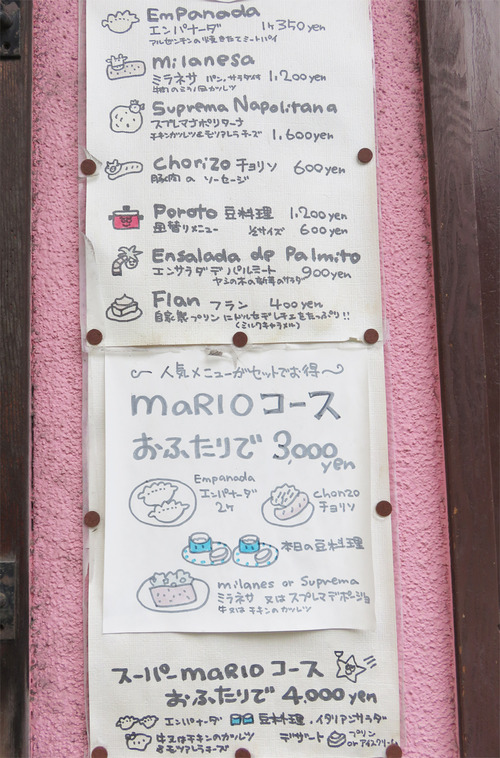 Empanada
エンパナーダ 1ヶ350yen
アルゼンチンの焼きたてミートパイ
milanesa
ミラネサ パン、サラダ付 1,200yen
Suprema Napolitana
スプレマナポリターナ
チキンカツレツ&モツアレラチーズ 1,600yen
Chorizo チョリソ 600yen
豚肉の ソーセージ
Poroto 豆料理 1,200yen
皿替りメニュー ½サイズ 600yen
Ensalada de Palmito
エンサラダ デ パルミート 900yen
ヤシの木の新芽のサラダ
Flan フラン 400yen
自家製プリンにドルセデレチェをたっぷり!!
(ミルクキャラメル)
〜人気メニューがセットでお得〜
maRIO コース
おふたりで 3,000
yen
Empanada
エンパナーダ
2ヶ
Chorizo
チョリソ
本日の豆料理
milanes or Suprema
ミラネサ 又はスプレマデポージョ
牛又はチキンのカツレツ
スーパーmaRIO コース
おふたりで 4,000 yen
エンパナーダ 豆料理・イタリアンサラダ
牛又はチキンのカツレツ
&モツアレラチーズ
デザート プリン
orアイスクリーム